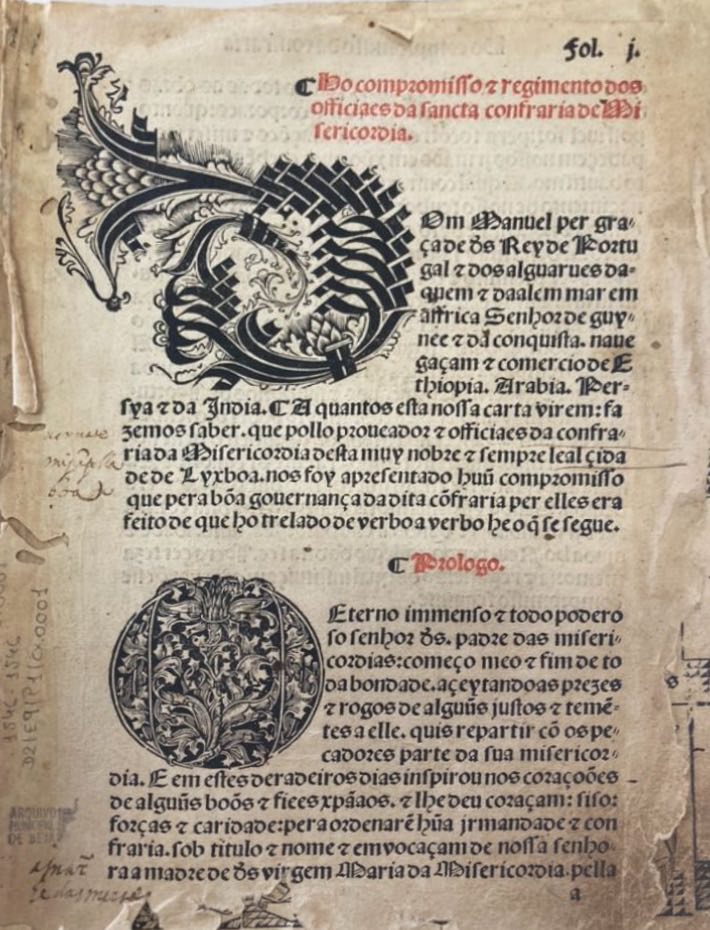 Fol. j.
¶ Ho compromisso ⁊ regimento dos
officiaes da sancta confraria de Mi
sericordia.
Om Manuel per gra-
ça de d̃s Rey de Portu
gal ⁊ dos alguarues da-
quem ⁊ daalem mar em
affrica Senhor de guy-
nee ⁊ da conquista. naue
gaçam ⁊ comercio de E
thiopia. Arabia. Per-
sya ⁊ da India. ¶ A quantos esta nossa carta virem: fa
zemos saber. que pollo proueador ⁊ officiaes da confra-
ria da Misericordia desta muy nobre ⁊ sempre leal çida
de de Lyxboa. nos foy apresentado huũ compromisso
que pera bõa gouernança da dita cõfraria per elles era
feito de que ho trelado de verbo a verbo he o q̃ se segue.
¶ Prologo.
O
Eterno immenso ⁊ todo podero
so senhor d̃s. padre das miseri-
cordias: começo meo ⁊ fim de to
da bondade. açeytando as prezes
⁊ rogos de alguũs justos ⁊ temẽ-
tes a elle. quis repartir cõ os pe-
cadores parte da sua misericor-
dia. E em estes deradeiros dias inspirou nos coraçoões
de alguũs boõs ⁊ fiees xp̃aãos. ⁊ lhe deu coraçam: siso:
forças ⁊ caridade: pera ordenarẽ hũa jrmandade ⁊ con
fraria. sob titulo ⁊ nome ⁊ em vocaçam de nossa senho-
ra a madre de d̃s virgem Maria da Misericordia. pella
a
ARQUIVO
MUNICIPAL